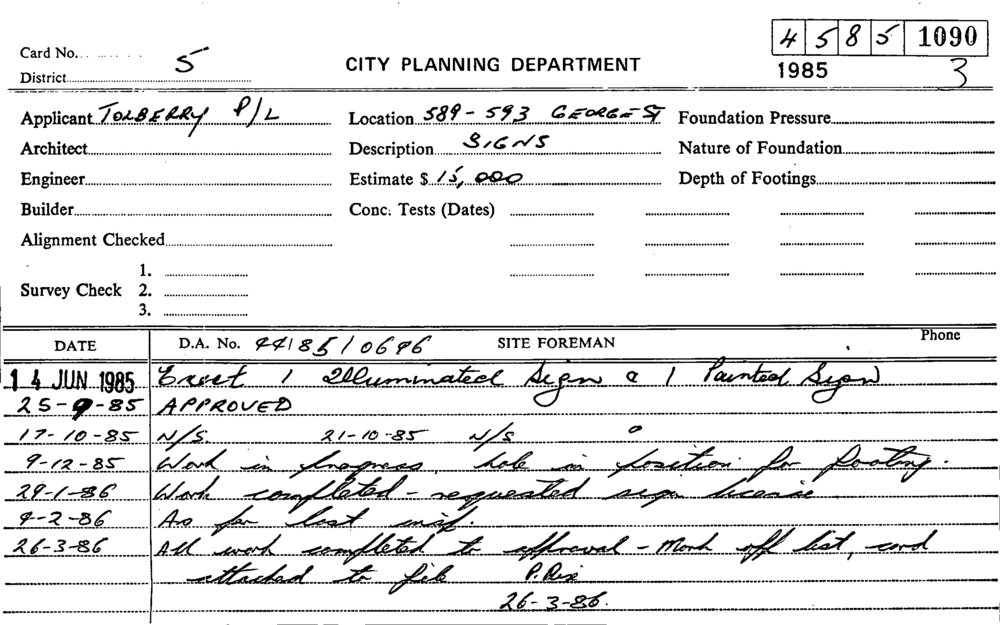 4 5 8 5 1090
Card No. 5
CITY PLANNING DEPARTMENT
1985 3
District
Applicant TOLBERRY P/L Location 589-593 GEORGE ST Foundation Pressure
Architect Description SIGNS Nature of Foundation
Engineer Estimate $ 15,000 Depth of Footings
Builder Conc. Tests (Dates)
Alignment Checked
1.
Survey Check 2.
3.
DATE D.A. No. 44/85/0696 SITE FOREMAN Phone
14 JUN 1985 Erect 1 Illuminated Sign & 1 Painted Sign
25-9-85 APPROVED
17-10-85 N/S 21-10-85 N/S
9-12-85 Work in progress, hole in position for footing.
29-1-86 Work completed - requested sign license
4-2-86 As per last insp.
26-3-86 All work completed to approval - Mark off list, card
attached to file P. Rix
26-3-86.